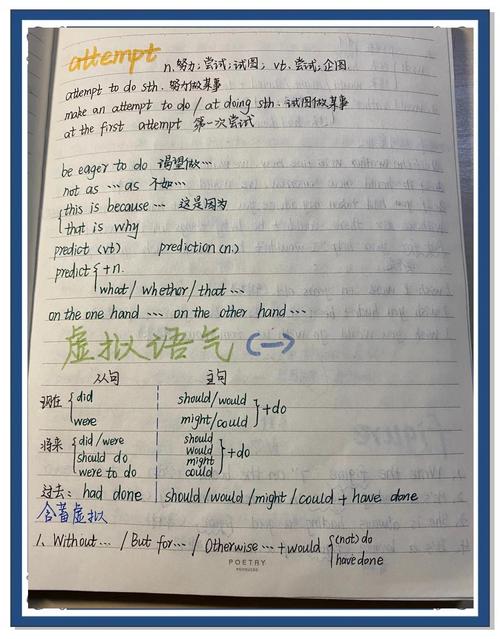 attempt n.努力；尝试；试图； vt. 尝试；企图
attempt to do sth. 努力做某事
make an attempt to do / at doing sth. 试图做某事
at the first attempt 第一次尝试
be eager to do 渴望做…
not as … as 不如…
this is because … 这是因为
that is why
predict (vt) prediction (n.)
predict { +n.
what / whether / that …
on the one hand … on the other hand …
虚拟语气 (一)
从句 主句
现在 { did should / would } +do
were might / could
将来 { did / were should
should do would } +do
were to do might
could
过去： had done should / would / might / could + have done
含蓄虚拟
1. Without… / But for… / Otherwise … + would { (not) do
have done
POETRY